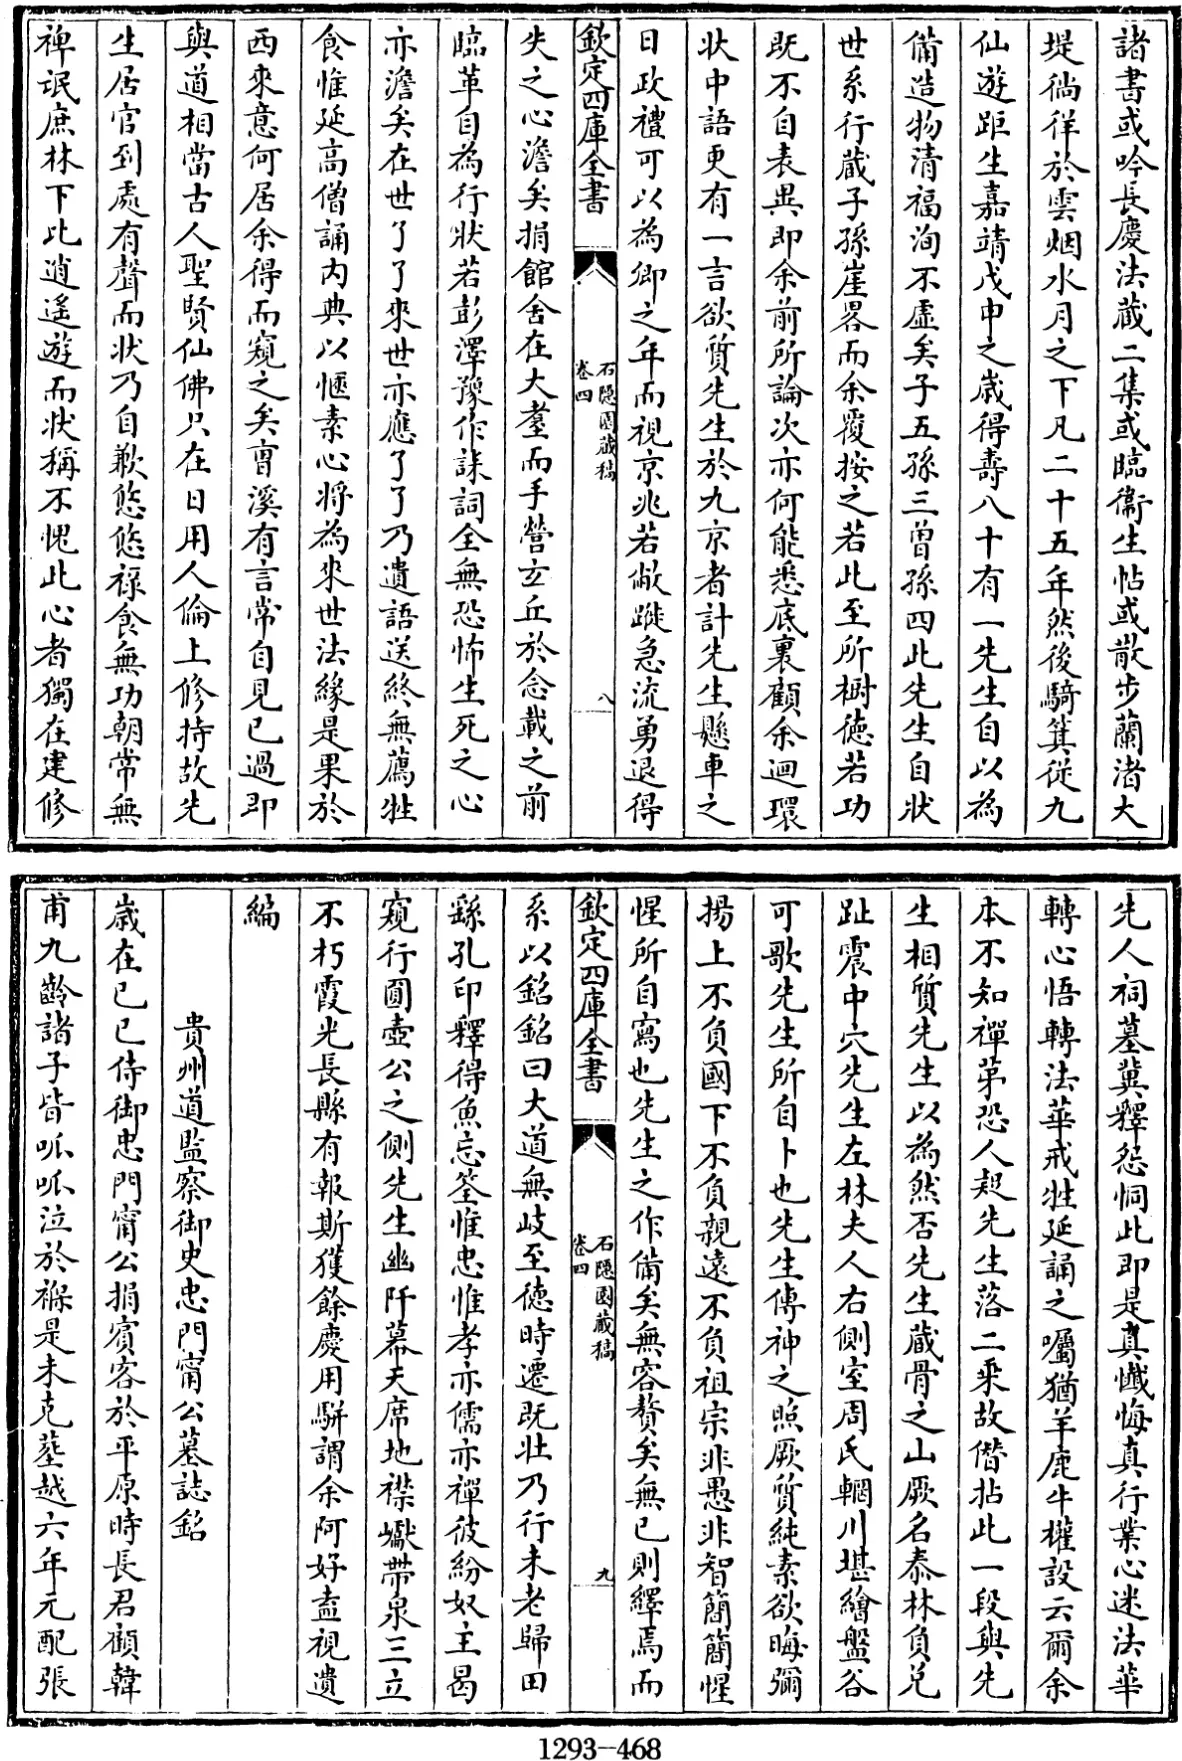 諸書或吟長慶法藏二集或臨衞生帖或散步蘭渚大
堤徜徉於雲烟水月之下凡二十五年然後騎箕從九
仙遊距生嘉靖戊申之歲得壽八十有一先生自以為
備造物清福洵不虛矣子五孫三曾孫四此先生自狀
世系行蔵子孫崖畧而余覆按之若此至所樹德若功
既不自表異即余前所論次亦何能悉底裏顧余迴環
狀中語更有一言欲質先生於九京者計先生懸車之
日政禮可以為卿之年而視京兆若敝蹝急流勇退得
欽定四庫全書
石隱園藏稿
卷四
八
失之心澹矣捐館舍在大耋而手營玄丘於念載之前
臨革自為行狀若彭澤豫作誄詞全無恐怖生死之心
亦澹矣在世了了來世亦應了了乃遺語送終無薦牲
食惟延高僧誦內典以愜素心將為來世法緣是果於
西來意何居余得而窺之矣曹溪有言常自見已過即
與道相當古人聖賢仙佛只在日用人倫上修持故先
生居官到處有聲而狀乃自歉悠悠祿食無功朝常無
裨氓庶林下此逍遙遊而狀稱不愧此心者獨在建修
先人祠墓冀釋怨恫此即是真懺悔真行業心迷法華
轉心悟轉法華戒牲延誦之囑猶羊鹿牛權設云爾余
本不知禪苐恐人起先生落二乘故僭拈此一段與先
生相質先生以為然否先生蔵骨之山厥名泰林負兌
趾震中穴先生左林夫人右側室周氏輞川堪繪盤谷
可歌先生所自卜也先生傳神之照厥質純素欲晦彌
揚上不負國下不負親遠不負祖宗非愚非智簡簡惺
惺所自寫也先生之作備矣無容贅矣無已則繹焉而
欽定四庫全書
石隱園藏稿
卷四
九
系以銘銘曰大道無岐至德時遷既壯乃行未老歸田
繇孔印釋得魚忘筌惟忠惟孝亦儒亦禪彼紛奴主曷
窺行圓壺公之側先生幽阡幕天席地襟巘帶泉三立
不朽霞光長縣有報斯獲餘慶用駢謂余阿好盍視遺
編
貴州道監察御史忠門甯公墓誌銘
歲在已已侍御忠門甯公捐賓客於平原時長君顧韓
甫九齡諸子皆呱呱泣於褓是未克塟越六年元配張
1293-468